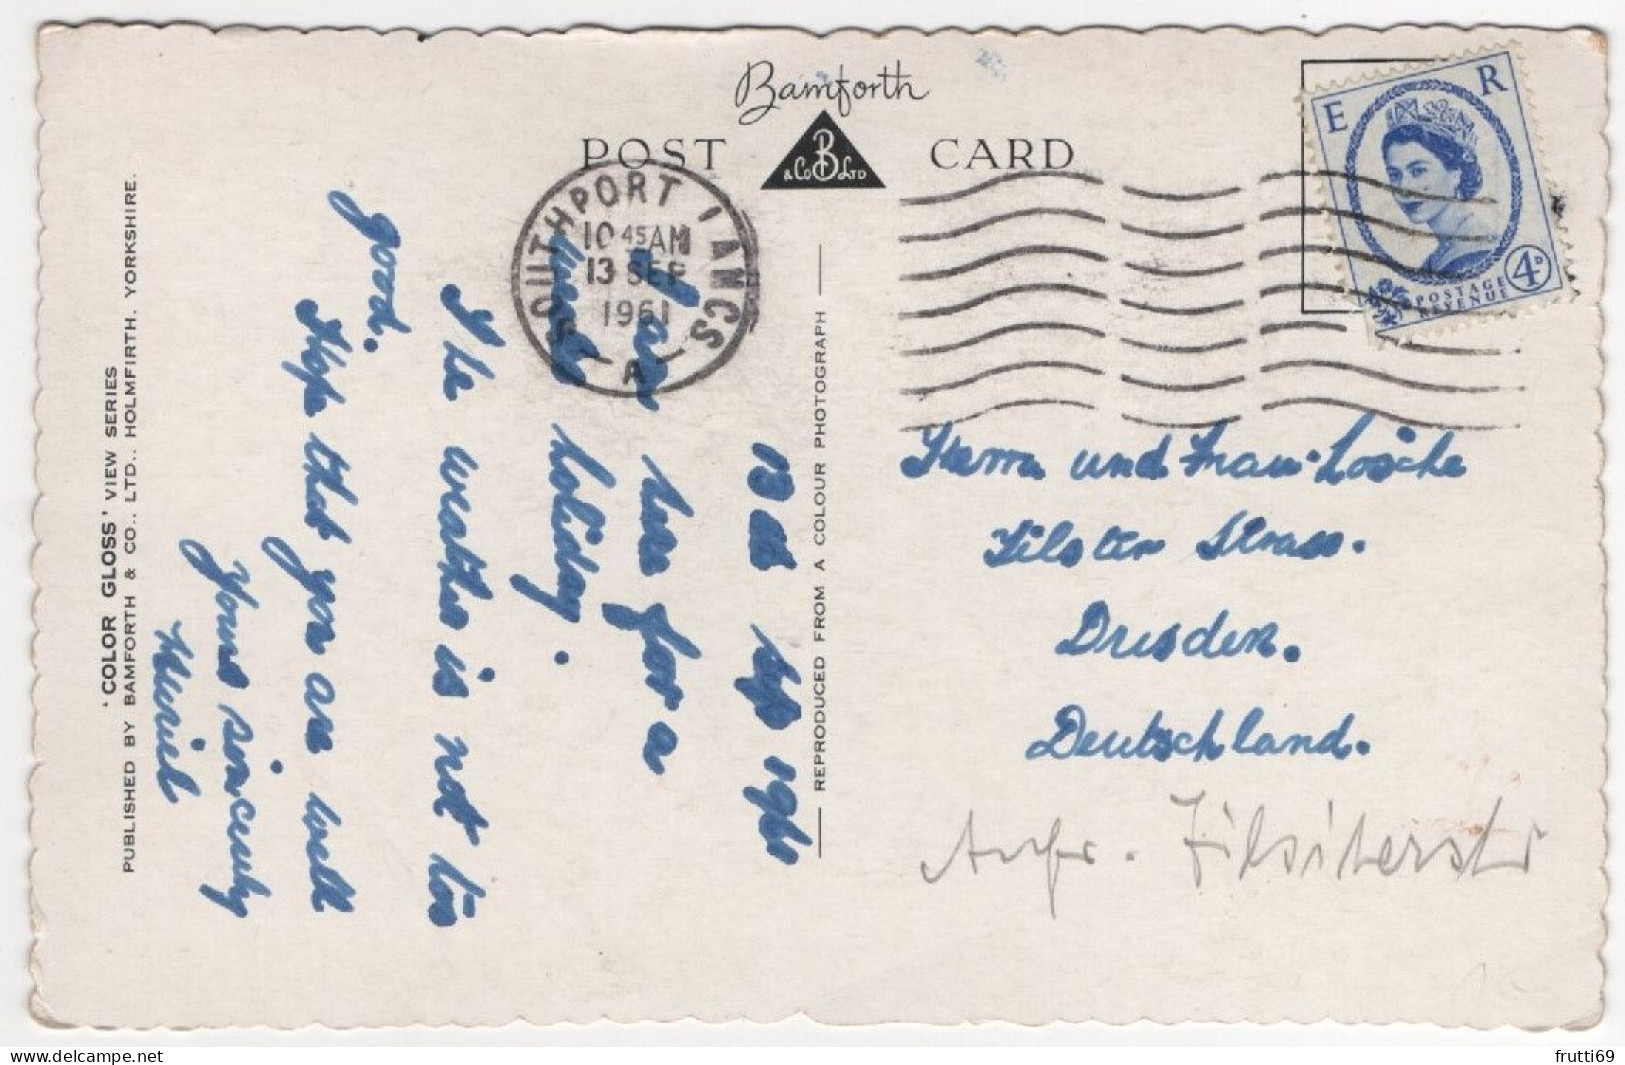 Bamforth
POST CARD
B
& Co LTD
E R
POSTAGE
REVENUE
4D
SOUTHPORT LANCS
10 45 AM
13 SEP
1961
A
13th Sep 1961
We are here for a
week holiday.
The weather is not too
good.
Hope that you are well
Yours sincerely
Muriel
'COLOR GLOSS' VIEW SERIES
PUBLISHED BY BAMFORTH & CO., LTD., HOLMFIRTH, YORKSHIRE.
REPRODUCED FROM A COLOUR PHOTOGRAPH
Herrn und Frau Lösche
Tilster Strass.
Dresden.
Deutschland.
Tilsiterstr
frutti69